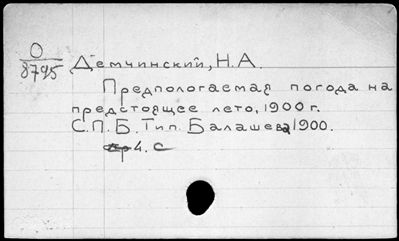 О
8795
Демчинский, Н.А.
Предпологаемая погода на
предстоящее лето, 1900 г.
С.П.Б. Тип. Балашева, 1900.
4. с